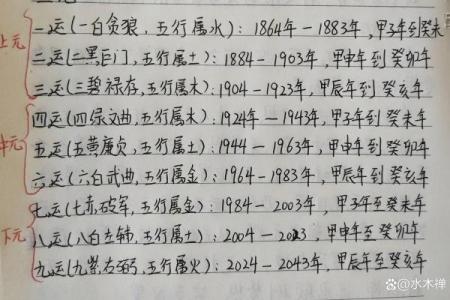 上元
一运(一白贪狼，五行属水)：1864年－1883年，甲子年到癸未
二运(二黑巨门，五行属土)：1884－1903年，甲申年到癸卯年
三运(三碧禄存，五行属木)：1904－1923年，甲辰年到癸亥年
中元
四运(四绿文曲，五行属木)：1924年－1943年，甲子年到癸未年
五运(五黄廉贞，五行属土)：1944－1963年，甲申年到癸卯年
六运(六白武曲，五行属金)：1964－1983年，甲辰年到癸亥年
下元
七运(七赤破军，五行属金)：1984－2003年，甲子年至癸未年
八运(八白左辅，五行属土)：2004－2023，甲申年至癸卯年
九运(九紫右弼，五行属火)：2024－2043年，甲辰年至癸亥年
@水木禅